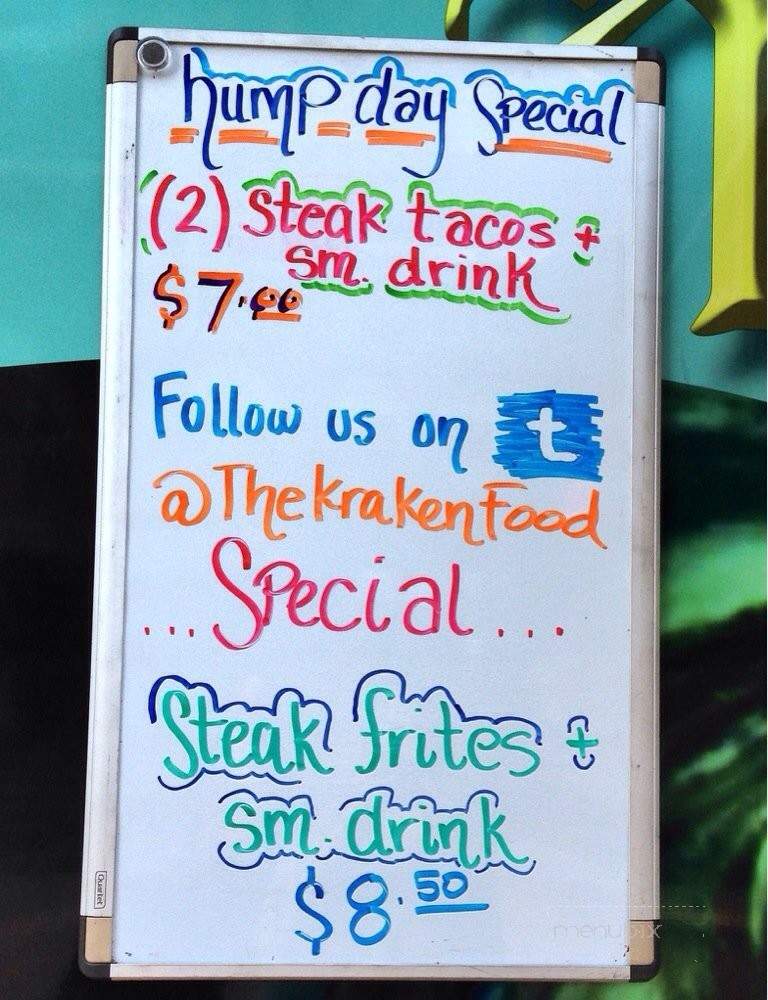 hump day Special
(2) Steak tacos +
sm. drink
$7.00
Follow us on t
@TheKrakenFood
... Special ...
Steak frites +
sm. drink
$8.50
Quartet
menupix